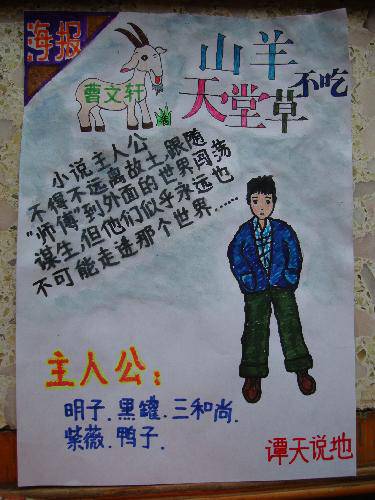 海报
曹文轩
山羊
不吃
天堂草
小说主人公
不得不远离故土,跟随
"师傅"到外面的世界闯荡
谋生,但他们似乎永远也
不可能走进那个世界……
主人公:
明子.黑罐.三和尚.
紫薇.鸭子.
谭天说地